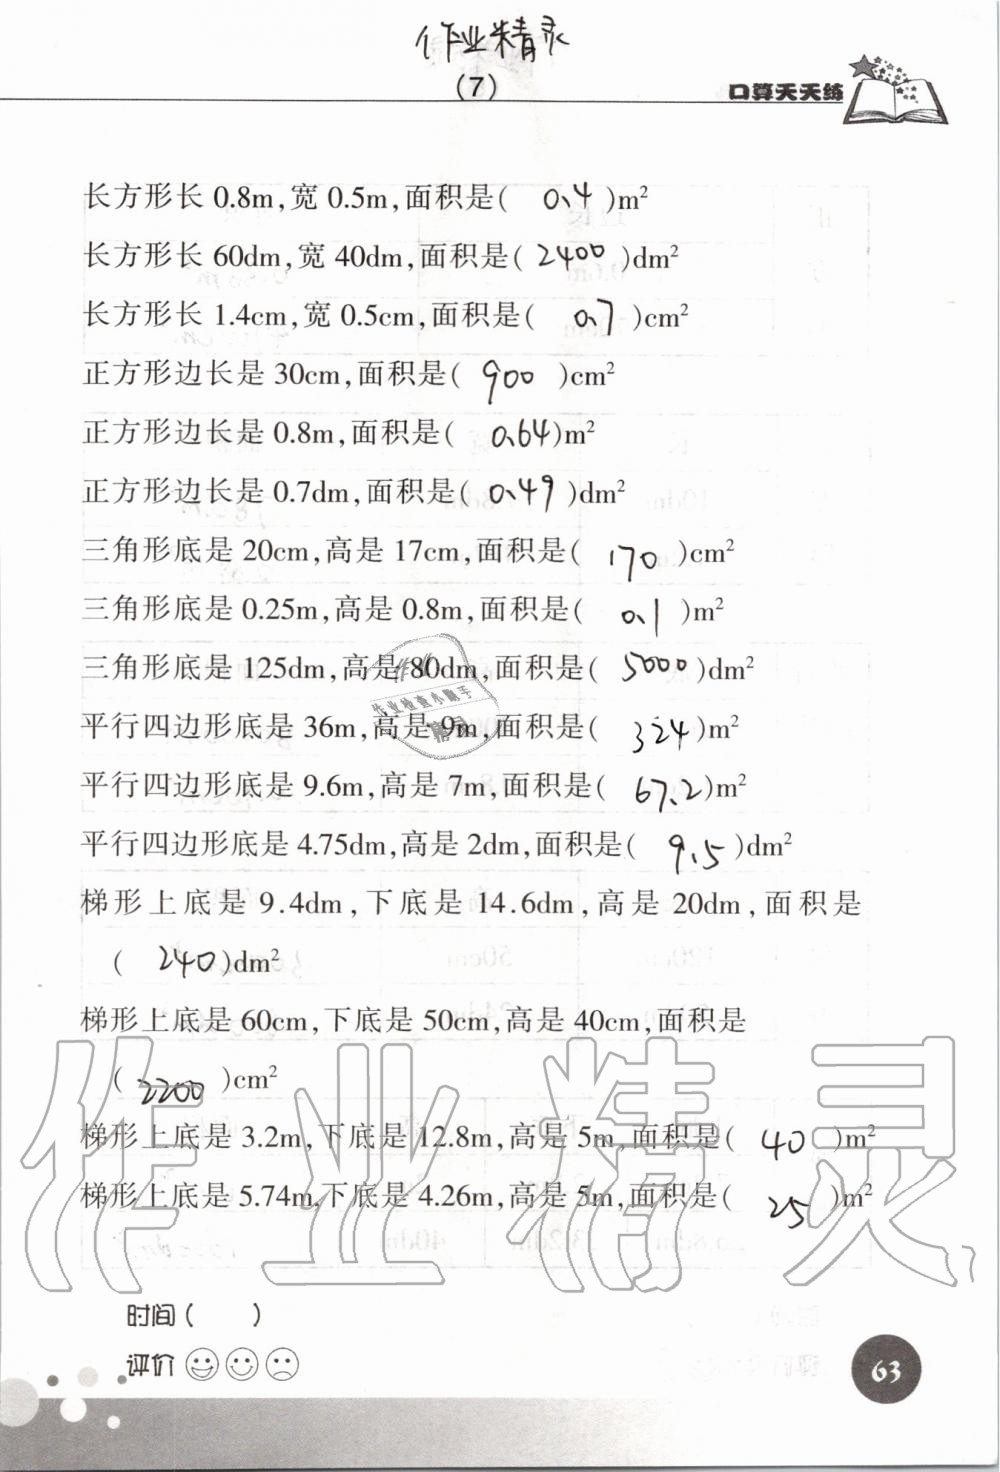 作业精灵
(7)
口算天天练
长方形长 0.8m,宽 0.5m,面积是( 0.4 )m²
长方形长 60dm,宽 40dm,面积是( 2400 )dm²
长方形长 1.4cm,宽 0.5cm,面积是( 0.7 )cm²
正方形边长是 30cm,面积是( 900 )cm²
正方形边长是 0.8m,面积是( 0.64 )m²
正方形边长是 0.7dm,面积是( 0.49 )dm²
三角形底是 20cm,高是 17cm,面积是( 170 )cm²
三角形底是 0.25m,高是 0.8m,面积是( 0.1 )m²
三角形底是 125dm,高是 80dm,面积是( 5000 )dm²
作业检查小助手
平行四边形底是 36m,高是 9m,面积是( 324 )m²
平行四边形底是 9.6m,高是 7m,面积是( 67.2 )m²
平行四边形底是 4.75dm,高是 2dm,面积是( 9.5 )dm²
梯形上底是 9.4dm,下底是 14.6dm,高是 20dm,面积是
( 240 )dm²
梯形上底是 60cm,下底是 50cm,高是 40cm,面积是
( 2200 )cm²
梯形上底是 3.2m,下底是 12.8m,高是 5m,面积是( 40 )m²
梯形上底是 5.74m,下底是 4.26m,高是 5m,面积是( 25 )m²
作业精灵
时间( )
评价
63